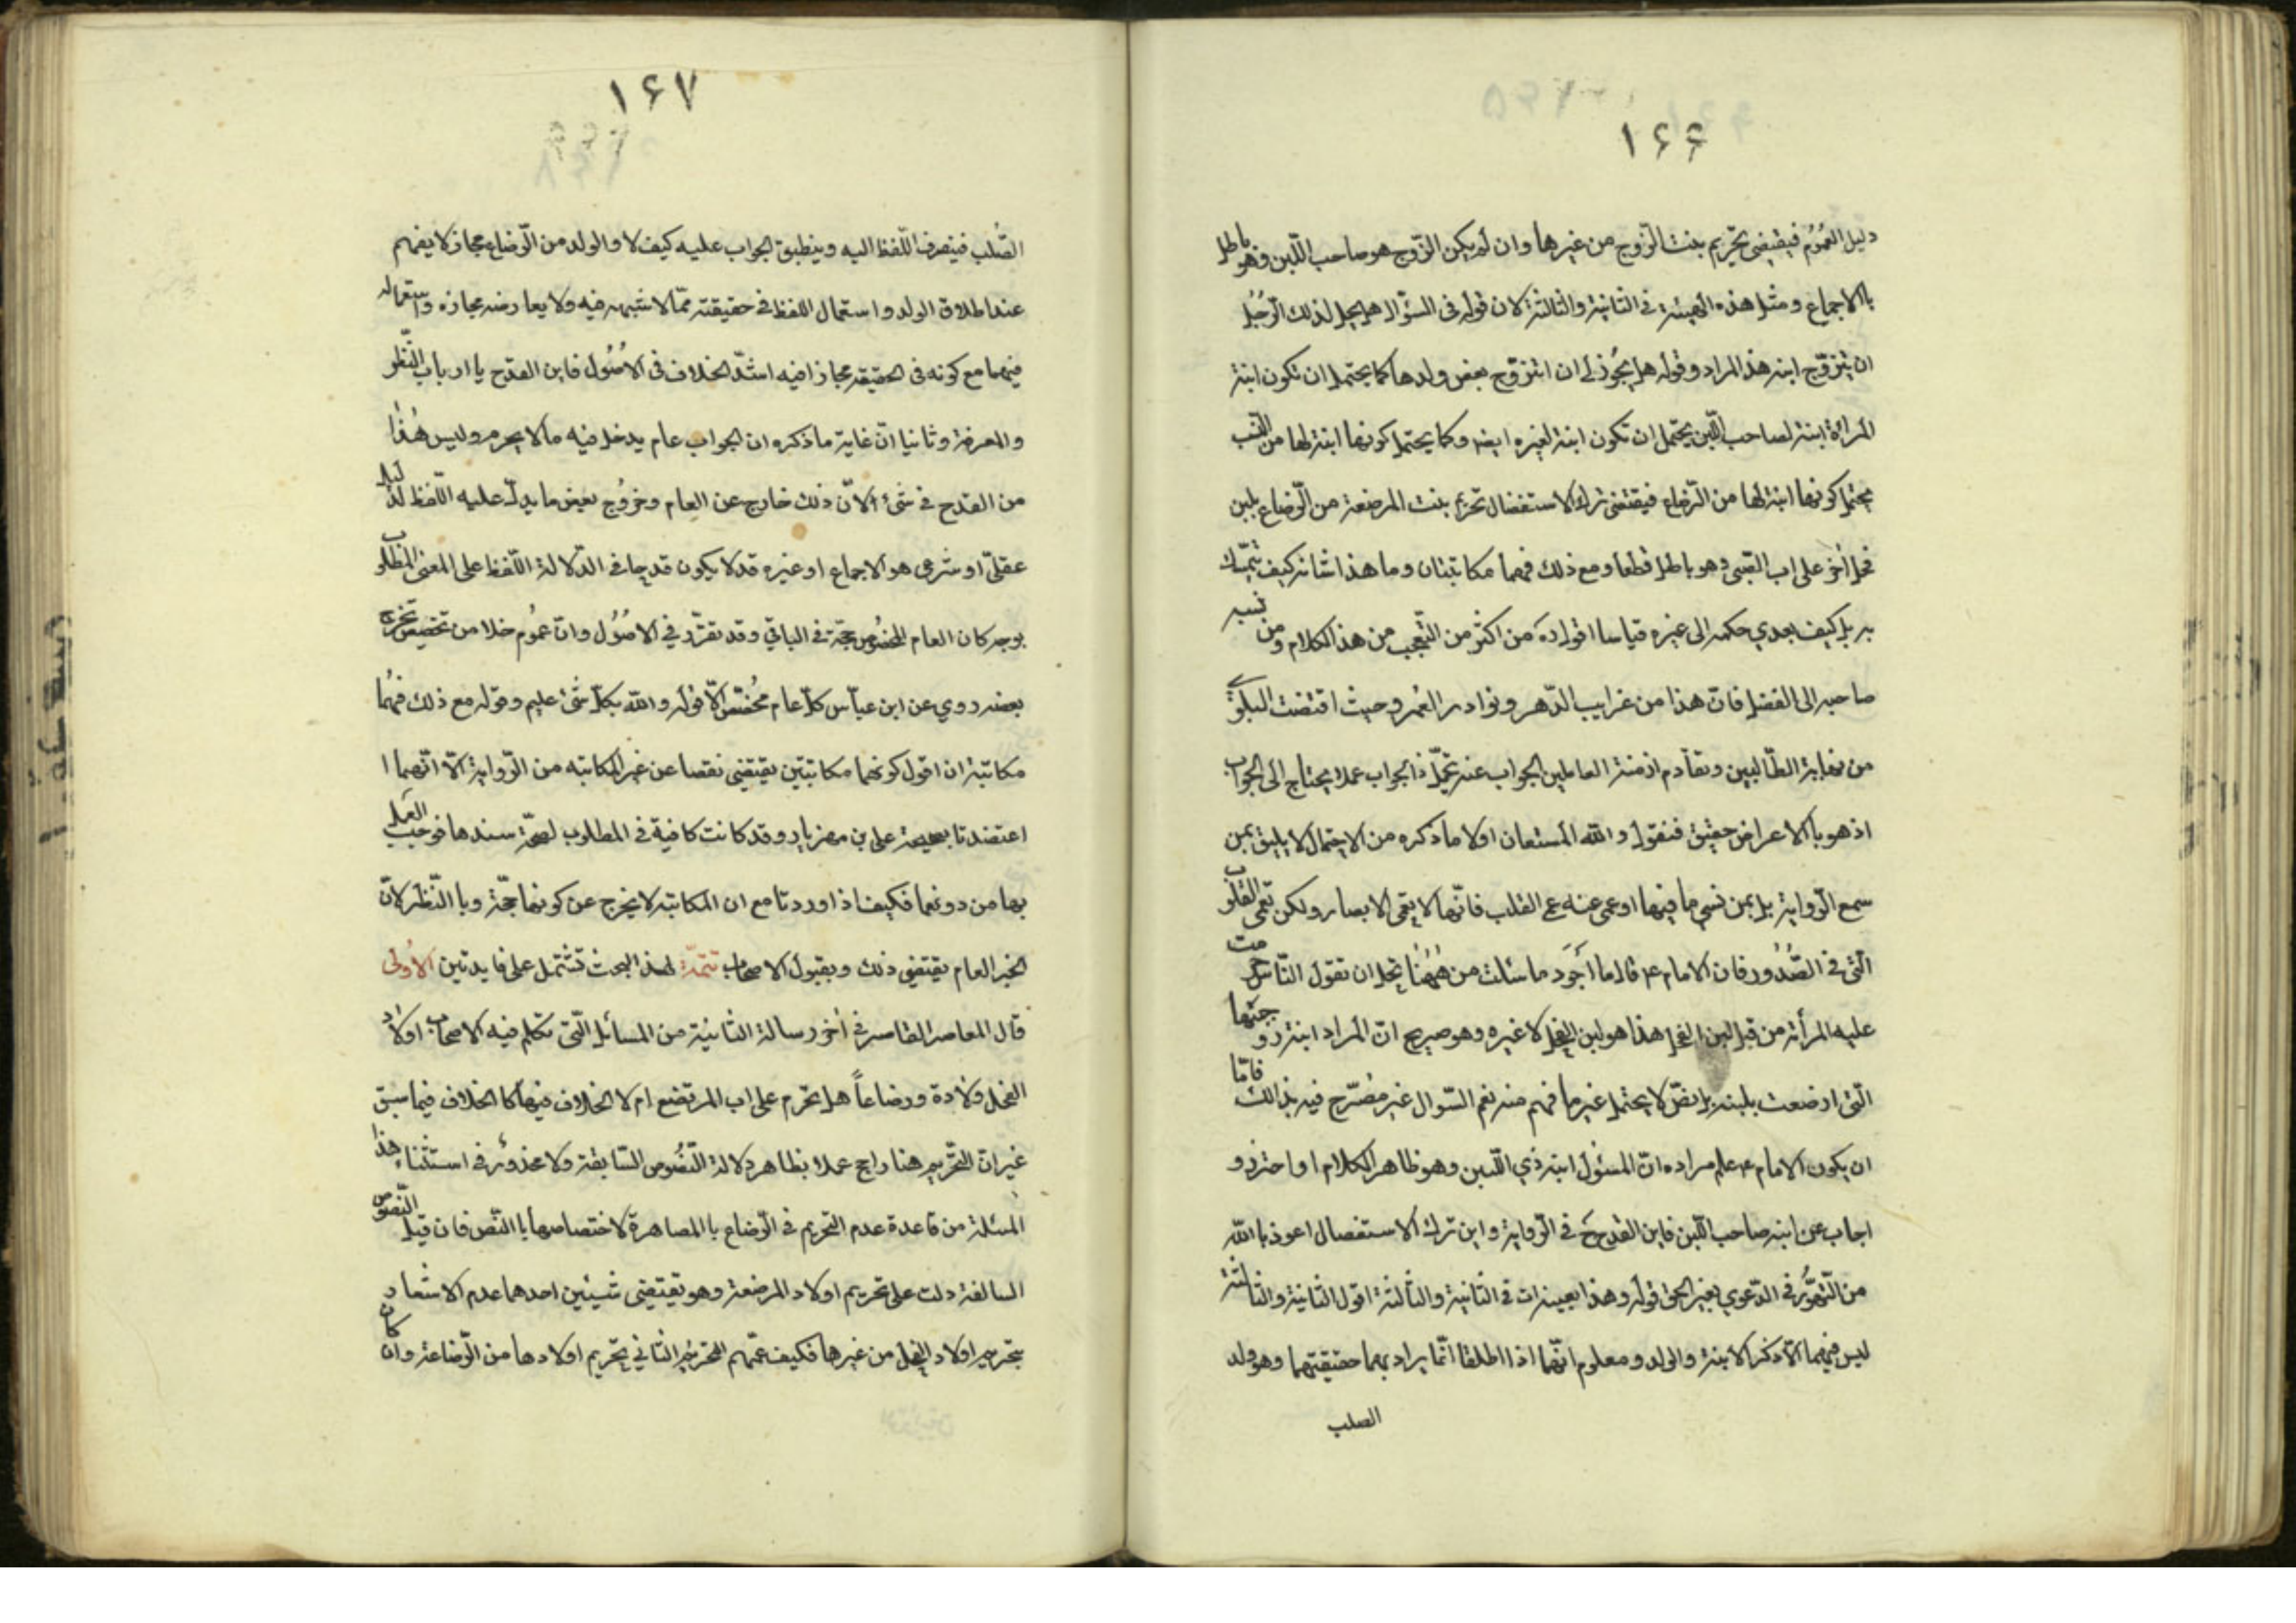 ١٦٦
دليل العموم فيقتضي تحريم بنت الزوج من غيرها وان لم يكن الزوج هو صاحب اللبن وهو باطل
بالاجماع ومثل هذه الهيئة في الثانية والثالثة لان قوله في السؤال هل يحل لذلك الرجل
ان يتزوج ابنة هذا المراد وقوله هل يجوز لي ان اتزوج بعض ولدها كما يحتمل ان تكون ابنة
المرأة ابنة لصاحب اللبن يحتمل ان تكون ابنة لغيره ايضا وكما يحتمل كونها ابنة لها من النسب
يحتمل كونها ابنة لها من الرضاع فيقتضي ترك الاستفصال تحريم بنت المرضعة من الرضاع بلبن
فحل اخر على اب الصبي وهو باطل قطعا ومع ذلك فهما مكاتبتان وما هذا شانه كيف يتمسك
به بل كيف يعدي حكمه الى غيره قياسا اقول ده من اكثر من التعجب من هذا الكلام ومن نسبه
صاحبه الى الفضل فان هذا من غرايب الدهر ونوادر العمر وحيث اقتضت البلوى
من نهاية الطالبين وتقادم ازمنة العاملين الجواب عنه بحل ذا الجواب عملا يحتاج الى الجواب
اذ هو بالاعراض حقيق فنقول والله المستعان اولا ما ذكره من الاحتمال لا يليق بمن
سمع الرواية بل بمن نسي ما فيها او عمى عنه عمى القلب فانها لا تعمى الابصار ولكن تعمى القلوب
التي في الصدور فان الامام ع قال ما اجود ما سئلت من ههنا يحل ان تقول الناس حرمت
عليه المرأته من قبل لبن الفحل هذا هو لبن الفحل لا غيره وهو صريح ان المراد ابنة زوجتها
التي ارضعت بلبنه بل نص لا يحتمل غير ما فهم منه نعم السوال غير مصرح فيه بذالك فامّا
ان يكون الامام ع علم مراده ان المسئول ابنة ذي اللبن وهو ظاهر الكلام او احترز و
اجاب عن ابنة صاحب اللبن فاين القدح ح في الرواية واين ترك الاستفصال اعوذ بالله
من التهور في الدعوي بغير الحق قوله وهذا بعينه ات في الثانية والثالثة اقول الثانية والثالثة
ليس فيهما الا ذكر الابنة والولد ومعلوم انهما اذا اطلقا انما يراد بهما حقيقتهما وهو ولد
الصلب
١٦٧
الصلب فينصرف اللفظ اليه وينطبق الجواب عليه كيف لا والولد من الرضاع مجاز لا يفهم
عند اطلاق الولد واستعمال اللفظ في حقيقته مما لا شبهه فيه ولا يعارضه مجازه واستعماله
فيهما مع كونه في الحقيقه مجازا فيه اشد الخلاف في الاصول فاين القدح يا ارباب النظر
والمعرفة وثانيا ان غاية ما ذكره ان الجواب عام يدخل فيه ما لا يحرم وليس هذا
من القدح في شئ لان ذلك خارج عن العام وخروج بعض ما يدل عليه اللفظ لدليل
عقلي او شرعي هو الاجماع او غيره قد لا يكون قدحا في الدلالة اللفظ على المعنى المطلوب
بوجه كان العام المخصوص حجة في الباقي وقد تقرر في الاصول وان عموم خلا من تخصيص تخرج
بعضه روي عن ابن عباس كل عام مخصص الا قوله والله بكل شئ عليم وقوله مع ذلك فهما
مكاتبة ان اقول كونهما مكاتبتين يقتضي نقصا عن غير المكاتبه من الرواية الا انهما ا
اعتضدتا بصحيحة علي بن مهزيار وقد كانت كافية في المطلوب لصحة سندها فوجب العمل
بها من دونهما فكيف اذا وردتا مع ان المكاتبه لا يخرج عن كونها حجة وبا النظر لان
الخبر العام يقتضي ذلك وبقبول الاصحاب تتمة لهذ البحث تشتمل على فايدتين الاولى
قال المعاصر القاصر في اخر رسالة الثانية من المسائل التي تكلم فيه الاصحاب اولاد
الفحل ولادة ورضاعاً هل تحرم على اب المرتضع ام لا الخلاف فيها كا الخلاف فيما سبق
غير ان التحريم هنا راجح عملا بظاهر دلالة النصوص السابقة ولا محذور في استثناء هذا
المسئلة من قاعدة عدم التحريم في الرضاع با المصاهرة لاختصاصها با النص فان قيل النصوص
السالفة دلت على تحريم اولاد المرضعة وهو يقتضي شيئين احدهما عدم الاشعار
بتحريم اولاد الفحل من غيرها فكيف عمهم التحريم الثاني تحريم اولادها من الرضاعة وان كان